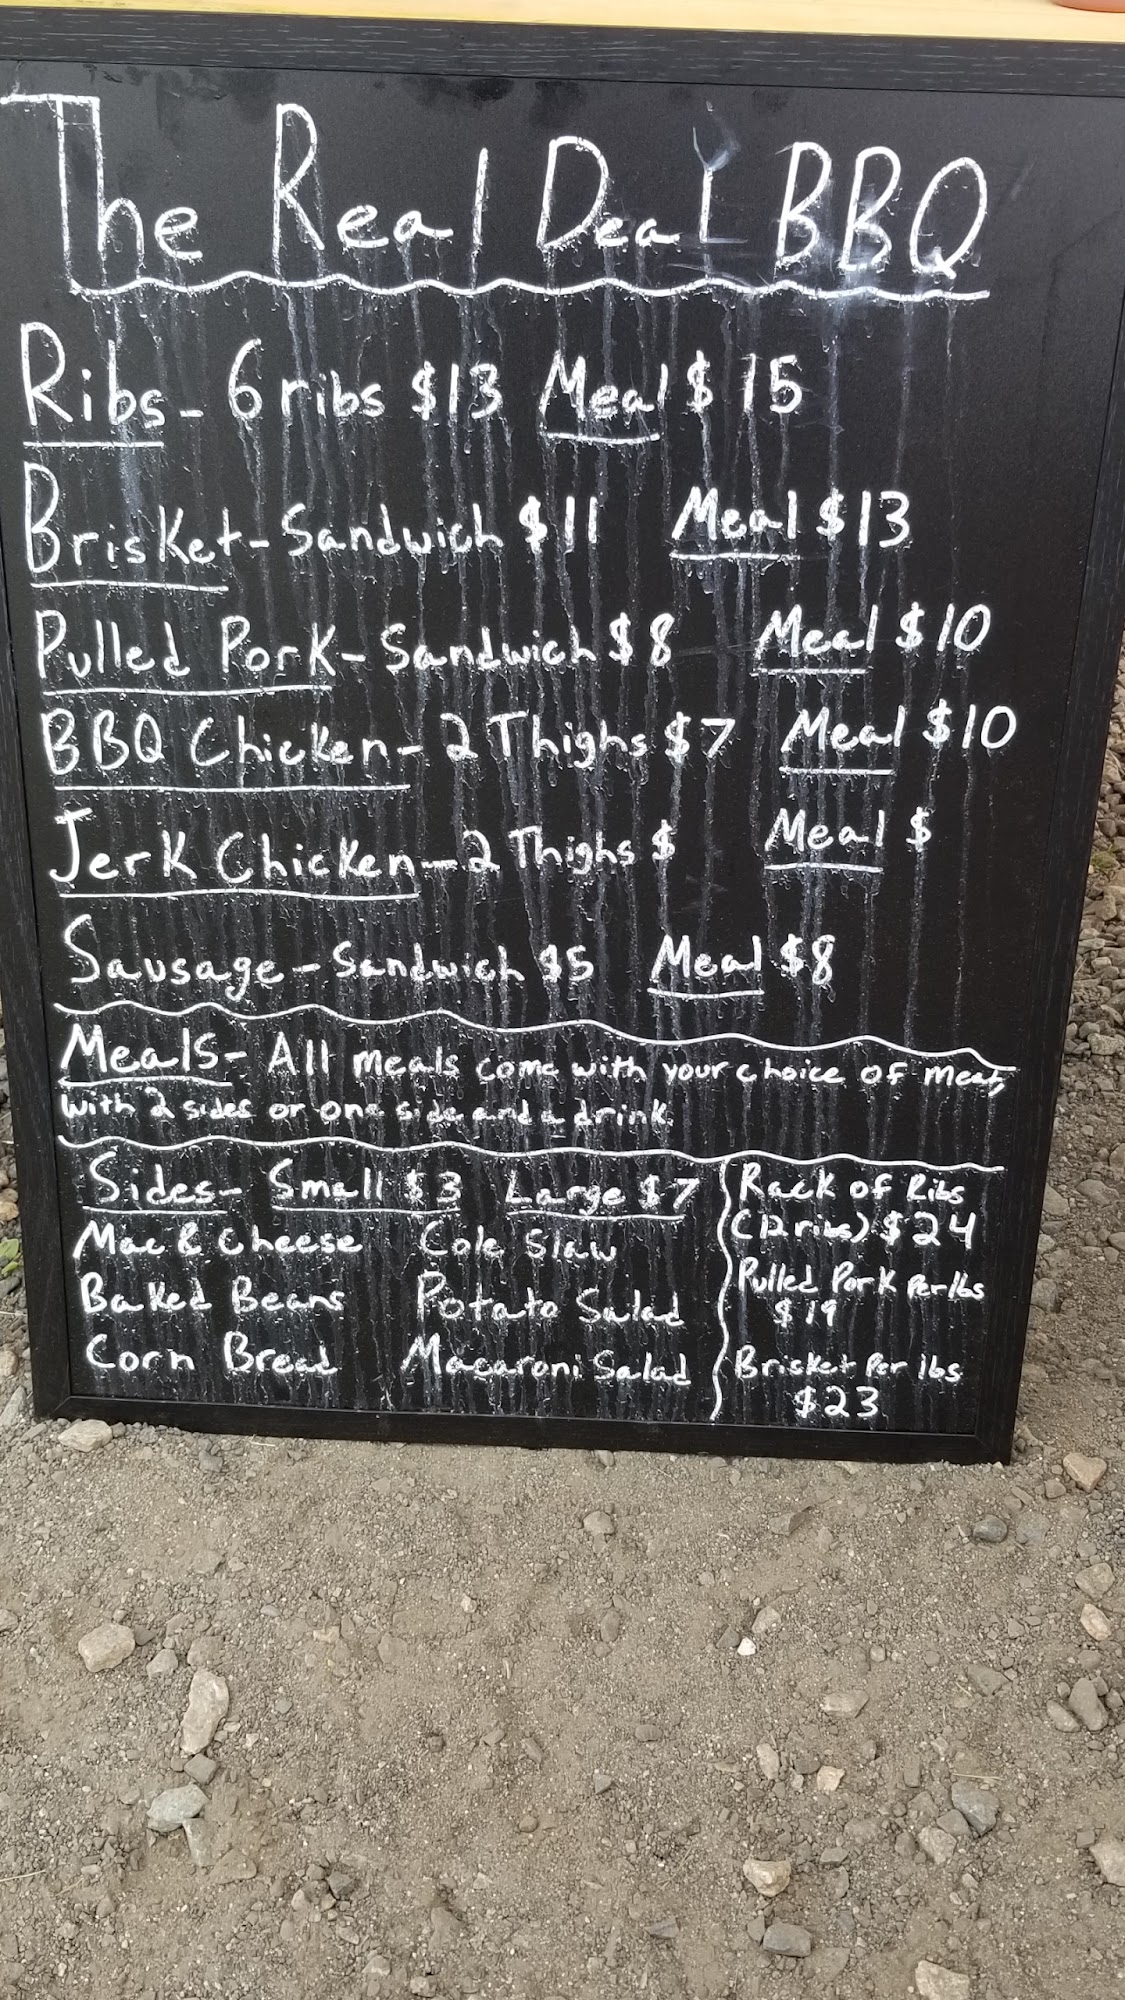 The Real Deal BBQ
Ribs- 6 ribs $13 Meal $15
Brisket- Sandwich $11 Meal $13
Pulled Pork- Sandwich $8 Meal $10
BBQ Chicken- 2 Thighs $7 Meal $10
Jerk Chicken- 2 Thighs $ Meal $
Sausage- Sandwich $5 Meal $8
Meals- All meals come with your choice of meat,
with 2 sides or one side and a drink.
Sides- Small $3 Large $7
Mac & Cheese Cole Slaw
Baked Beans Potato Salad
Corn Bread Macaroni Salad
Rack of Ribs
(12 ribs) $24
Pulled Pork Per lbs
$19
Brisket Per lbs
$23